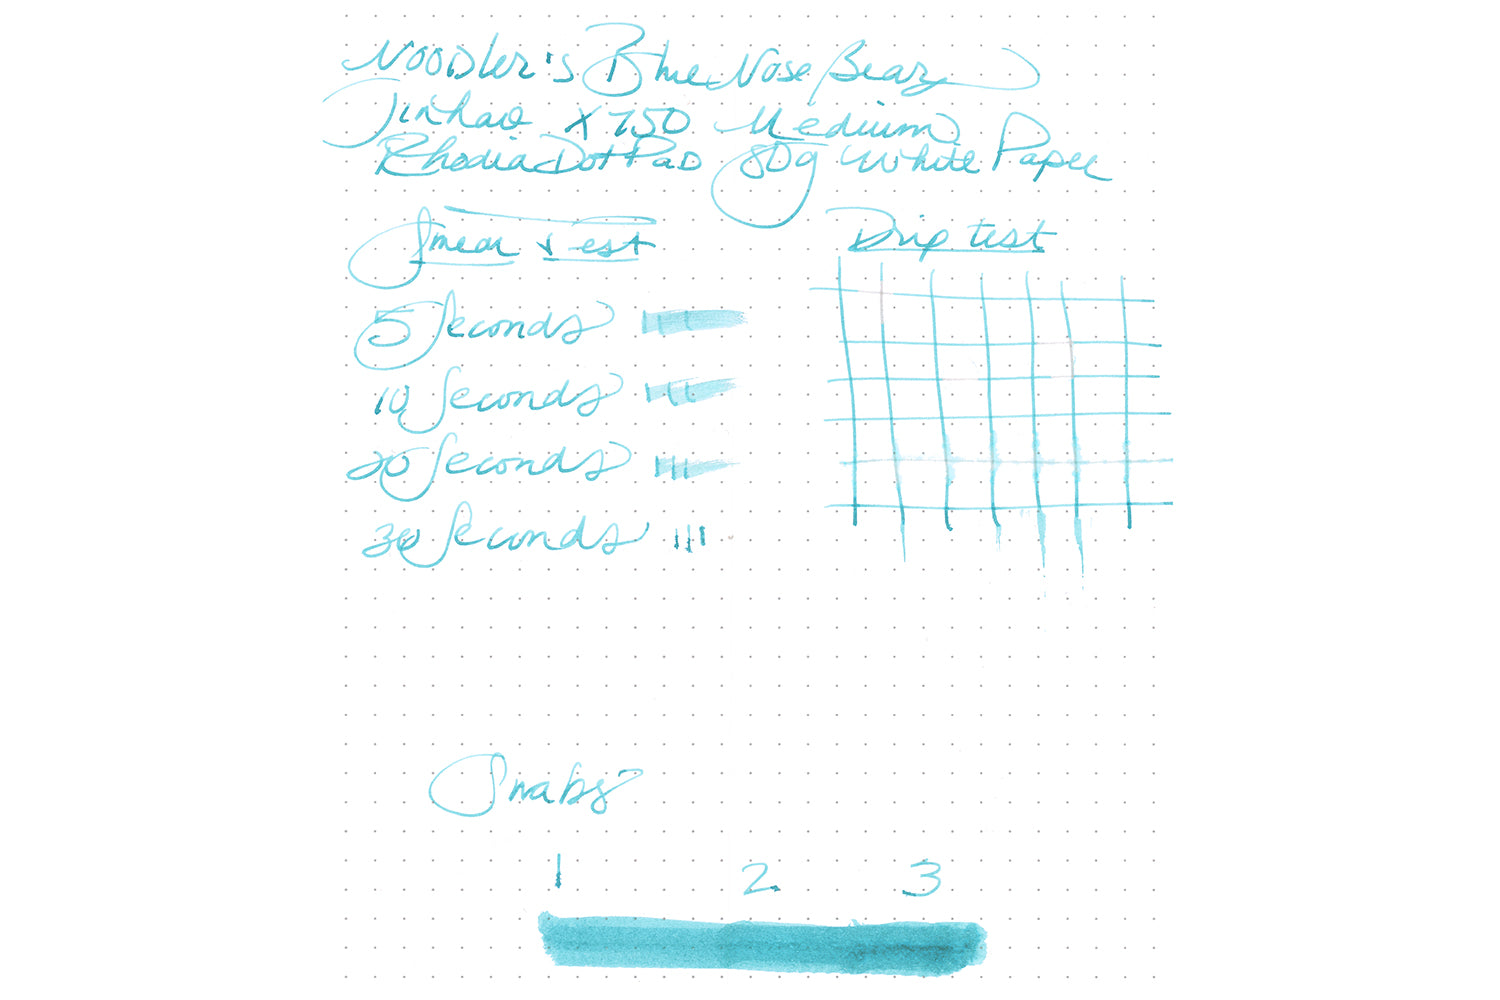 Noodler's Blue Nose Bear
Jinhao X750 Medium
Rhodia DotPad 80g White Paper
Smear Test
Drip test
5 Seconds
10 Seconds
20 Seconds
30 Seconds
Swabs
1 2 3